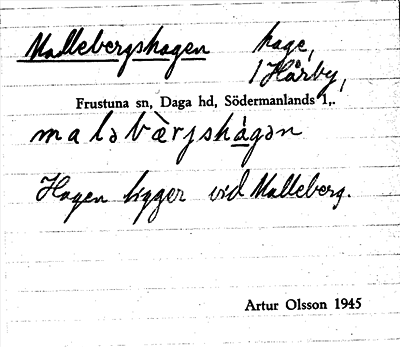 Mallebergshagen hage,
1 Hårby,
Frustuna sn, Daga hd, Södermanlands l,.
maləbàrjshágən
Hagen ligger vid Malleberg.
Artur Olsson 1945